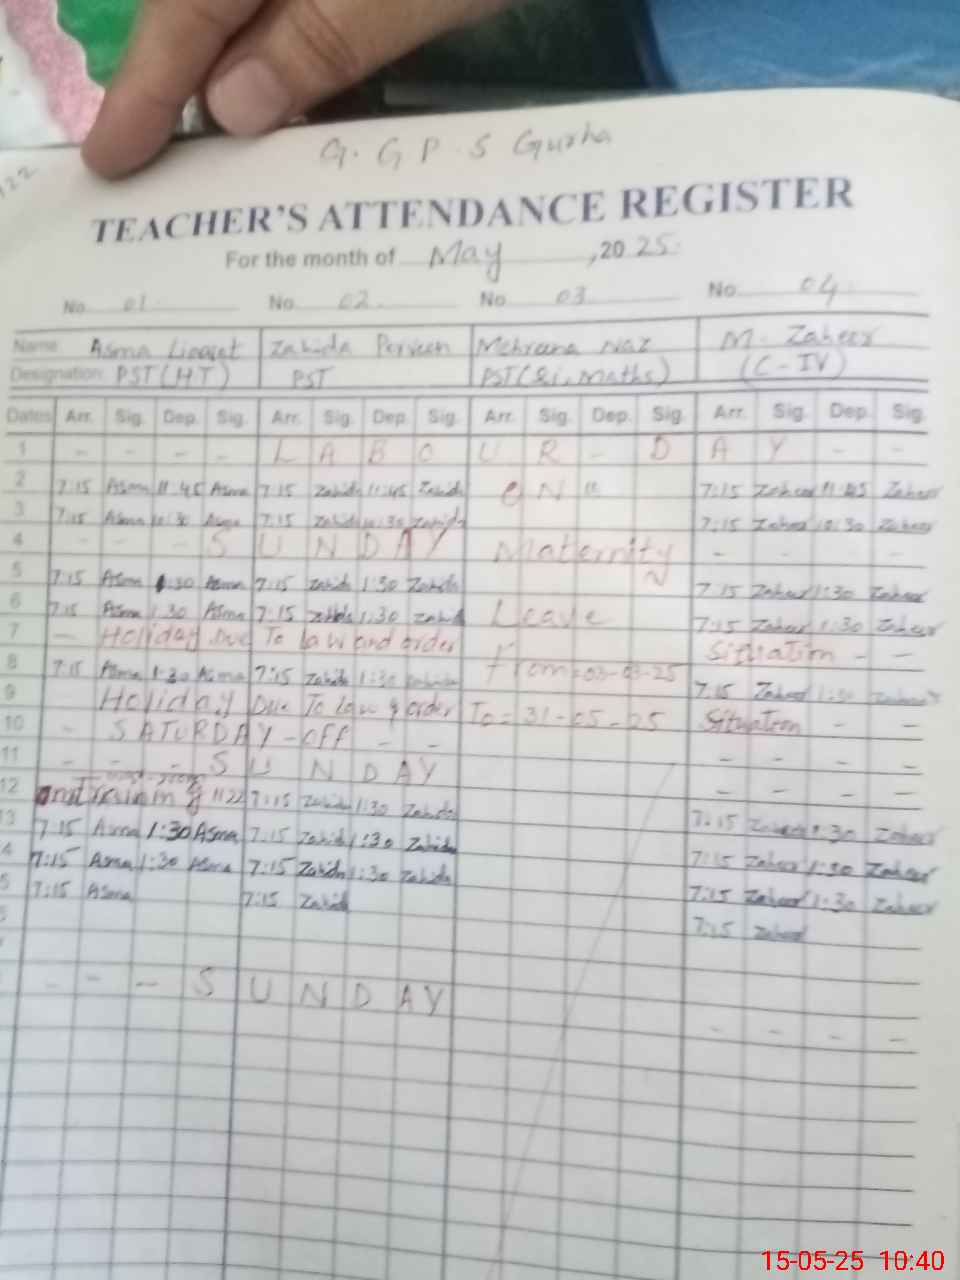 G. G P. S Gurha
TEACHER'S ATTENDANCE REGISTER
For the month of May, 2025.
No. 01 No. 02 No. 03 No. 04
Name: Asma Liaqat Zahida Perveen Mehreena Naz M. Zaheer
Designation: PST(HT) PST PST(Sci, Maths) (C-IV)
Dates Arr. Sig. Dep. Sig. Arr. Sig. Dep. Sig. Arr. Sig. Dep. Sig. Arr. Sig. Dep. Sig.
1 - - - - L A B O U R - D A Y - -
2 7:15 Asma 11:45 Asma 7:15 Zahida 11:45 Zahida ON 7:15 Zaheer 11:45 Zaheer
3 7:15 Asma 10:30 Asma 7:15 Zahida 10:30 Zahida 7:15 Zaheer 10:30 Zaheer
4 - - - S U N D A Y Maternity - - - -
5 7:15 Asma 1:30 Asma 7:15 Zahida 1:30 Zahida 7:15 Zaheer 1:30 Zaheer
6 7:15 Asma 1:30 Asma 7:15 Zahida 1:30 Zahida Leave 7:15 Zaheer 1:30 Zaheer
7 - Holiday Due To law and order Situation - -
8 7:15 Asma 1:30 Asma 7:15 Zahida 1:30 Zahida From=03-03-25 7:15 Zaheer 1:30 Zaheer
9 Holiday Due To law & order To = 31-05-25 Situation - -
10 - SATURDAY-OFF - - - - - -
11 - - - S U N D A Y - - - -
12 on Training 7:15 Zahida 1:30 Zahida 7:15 Zaheer 1:30 Zaheer
13 7:15 Asma 1:30 Asma 7:15 Zahida 1:30 Zahida 7:15 Zaheer 1:30 Zaheer
4 7:15 Asma 1:30 Asma 7:15 Zahida 1:30 Zahida 7:15 Zaheer 1:30 Zaheer
5 7:15 Asma 7:15 Zahid 7:15 Zaheer
- - - S U N D A Y - - - -
15-05-25 10:40